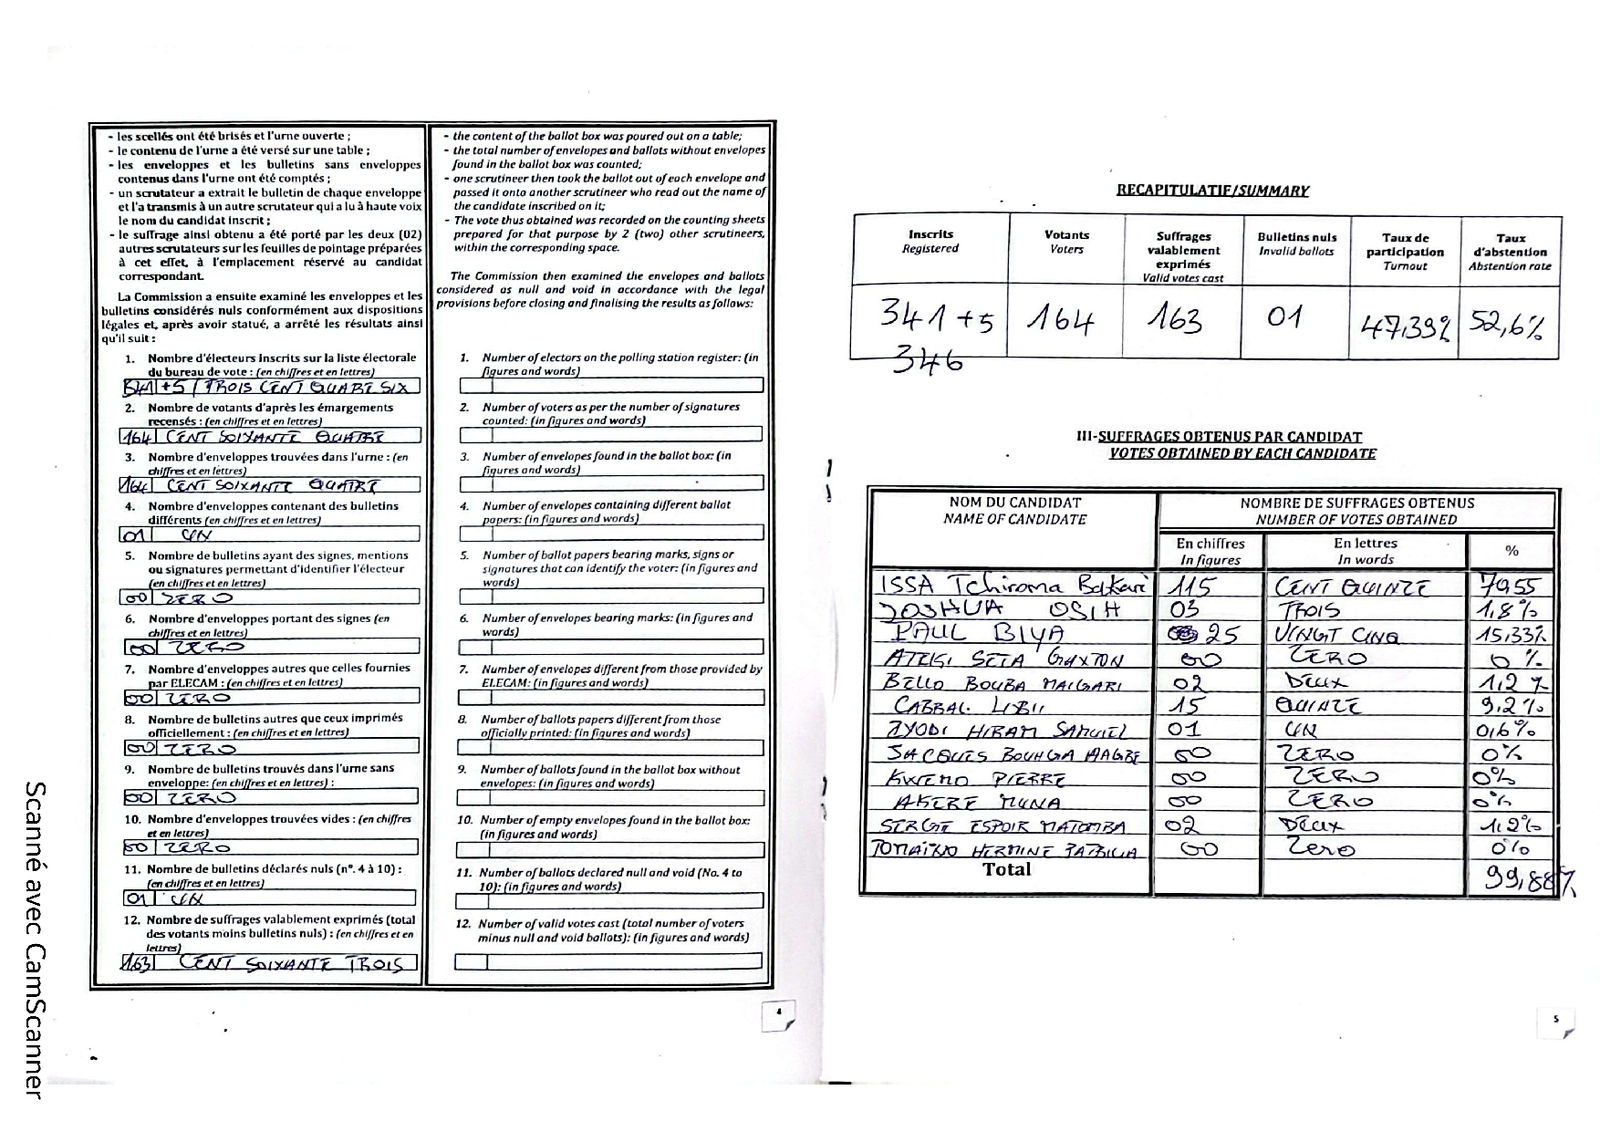 - les scellés ont été brisés et l'urne ouverte ;
- le contenu de l'urne a été versé sur une table ;
- les enveloppes et les bulletins sans enveloppes
contenus dans l'urne ont été comptés ;
- un scrutateur a extrait le bulletin de chaque enveloppe
et l'a transmis à un autre scrutateur qui a lu à haute voix
le nom du candidat inscrit ;
- le suffrage ainsi obtenu a été porté par les deux (02)
autres scrutateurs sur les feuilles de pointage préparées
à cet effet, à l'emplacement réservé au candidat
correspondant.
La Commission a ensuite examiné les enveloppes et les
bulletins considérés nuls conformément aux dispositions
légales et, après avoir statué, a arrêté les résultats ainsi
qu'il suit :
1. Nombre d'électeurs inscrits sur la liste électorale
du bureau de vote : (en chiffres et en lettres)
341 +5 TROIS CENT QUARE SIX
2. Nombre de votants d'après les émargements
recensés : (en chiffres et en lettres)
164 CENT SOIXANTE QUATRE
3. Nombre d'enveloppes trouvées dans l'urne : (en
chiffres et en lettres)
164 CENT SOIXANTE QUATRE
4. Nombre d'enveloppes contenant des bulletins
différents (en chiffres et en lettres)
01 UN
5. Nombre de bulletins ayant des signes, mentions
ou signatures permettant d'identifier l'électeur
(en chiffres et en lettres)
00 ZERO
6. Nombre d'enveloppes portant des signes (en
chiffres et en lettres)
00 ZERO
7. Nombre d'enveloppes autres que celles fournies
par ELECAM : (en chiffres et en lettres)
00 ZERO
8. Nombre de bulletins autres que ceux imprimés
officiellement : (en chiffres et en lettres)
00 ZERO
9. Nombre de bulletins trouvés dans l'urne sans
enveloppe: (en chiffres et en lettres) :
00 ZERO
10. Nombre d'enveloppes trouvées vides : (en chiffres
et en lettres)
00 ZERO
11. Nombre de bulletins déclarés nuls (n°. 4 à 10) :
(en chiffres et en lettres)
01 UN
12. Nombre de suffrages valablement exprimés (total
des votants moins bulletins nuls) : (en chiffres et en
lettres)
163 CENT SOIXANTE TROIS
- the content of the ballot box was poured out on a table;
- the total number of envelopes and ballots without envelopes
found in the ballot box was counted;
- one scrutineer then took the ballot out of each envelope and
passed it onto another scrutineer who read out the name of
the candidate inscribed on it;
- The vote thus obtained was recorded on the counting sheets
prepared for that purpose by 2 (two) other scrutineers,
within the corresponding space.
The Commission then examined the envelopes and ballots
considered as null and void in accordance with the legal
provisions before closing and finalising the results as follows:
1. Number of electors on the polling station register: (in
figures and words)
2. Number of voters as per the number of signatures
counted: (in figures and words)
3. Number of envelopes found in the ballot box: (in
figures and words)
4. Number of envelopes containing different ballot
papers: (in figures and words)
5. Number of ballot papers bearing marks, signs or
signatures that can identify the voter: (in figures and
words)
6. Number of envelopes bearing marks: (in figures and
words)
7. Number of envelopes different from those provided by
ELECAM: (in figures and words)
8. Number of ballots papers different from those
officially printed: (in figures and words)
9. Number of ballots found in the ballot box without
envelopes: (in figures and words)
10. Number of empty envelopes found in the ballot box:
(in figures and words)
11. Number of ballots declared null and void (No. 4 to
10): (in figures and words)
12. Number of valid votes cast (total number of voters
minus null and void ballots): (in figures and words)
4
RECAPITULATIF/SUMMARY
Inscrits Registered
Votants Voters
Suffrages valablement exprimés Valid votes cast
Bulletins nuls Invalid ballots
Taux de participation Turnout
Taux d'abstention Abstention rate
341 +5 164 163 01 47,39% 52,6%
346
III-SUFFRAGES OBTENUS PAR CANDIDAT
VOTES OBTAINED BY EACH CANDIDATE
NOM DU CANDIDAT NOMBRE DE SUFFRAGES OBTENUS
NAME OF CANDIDATE NUMBER OF VOTES OBTAINED
En chiffres En lettres %
In figures In words
ISSA Tchiroma Bakari 115 CENT QUINZE 70,55
JOSHUA OSIH 03 TROIS 1,8%
PAUL BIYA 25 VINGT CINQ 15,33%
ATEKI SETA CAXTON 00 ZERO 0%
BELLO BOUBA MAIGARI 02 DEUX 1,2%
CABRAL LIBII 15 QUINZE 9,2%
IYODI HIRAM SAMUEL 01 UN 0,6%
JACQUES BOUHGA HAGBE 00 ZERO 0%
KWEMO PIERRE 00 ZERO 0%
AKERE MUNA 00 ZERO 0%
SERGE ESPOIR MATOMBA 02 DEUX 1,2%
TOMAINO HERMINE PATRICIA 00 Zero 0%
Total 99,88%
5
Scanné avec CamScanner